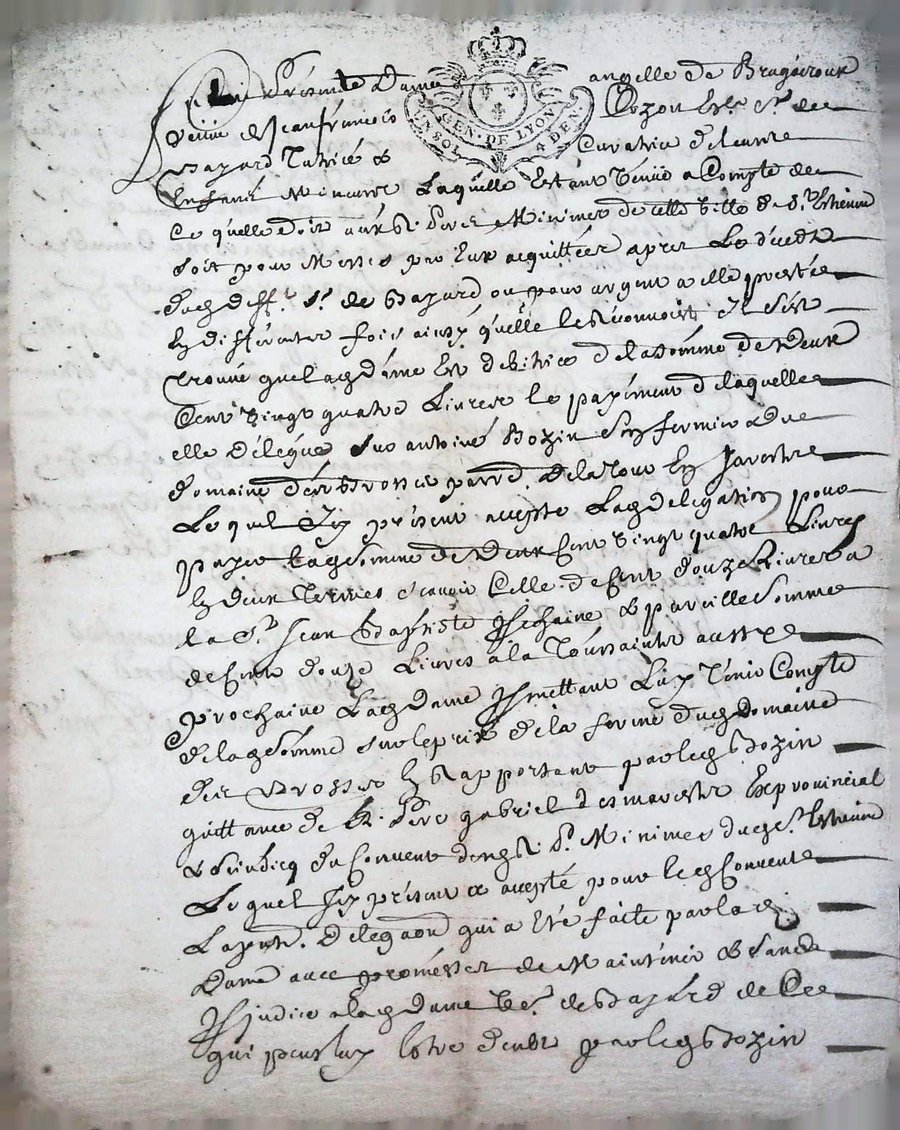 GEN. DE LYON
UN SOL 4 DEN.
présente Dame angelle de Bragéroux
veüve de Jean francois Cozon de
Bazard Tutrice & Curatrice de leurs
Enfans Mineurs Laquelle Estant Venüe a Compte de
Ce quelle doit aux R. Peres Minimes de cette Ville de St. Esthienne
soit pour Messes par Eux acquittées apres Le déceds
dudit defft. Sr. de Bazard ou pour argent a elle prestée
En differentes fois ainsy quelle le Reconnoist Il s'est
Trouvé que ladite dame Est debitrice de la somme de deux
Cent Vingt quatre Livres le payement de laquelle
elle délégue sur antoine Bozin son fermier du
domaine des Brosses parr. de la Tour En Jarestre
Lequel Icy présent accepte Ladite delegation pour
payer ladite somme de deux Cent Vingt quatre Livres
En deux Termes scavoir Celle de Cent douze Livres a
la St. Jean Baptiste prochaine & pareille somme
de Cent douze Livres a la Toussaints aussy
prochaine Ladite Dame promettant Luy Tenir Compte
de ladite somme sur le prix de la ferme dudit Domaine
des Brosses En Rapportant par ledit Bozin
quittance de R. Pere gabriel desmarestz Exprovincial
& Sindicq du Convent desdits R. P. Minimes dudit St. Esthienne
Lequel Icy présent a accepté pour ledit Convent
La pnte. délegaon qui a Eté faite par la
Dame avec promesses de Maintenir & sans
préjudice a ladite Dame Ve. de Bazard de Ce
qui peut luy Estre deub par ledit Bozin